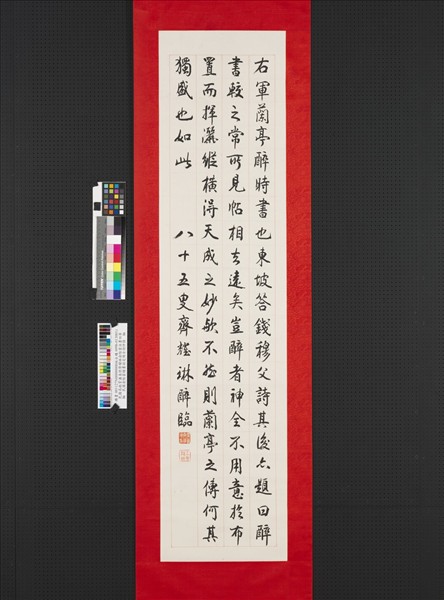 右軍蘭亭醉時書也東坡答錢穆父詩其後亦題曰醉
書較之常所見帖相去遠矣豈醉者神全不用意於布
置而揮灑縱橫得天成之妙歟不然則蘭亭之傳何其
獨盛也如此 八十五叟齊耀琳醉臨